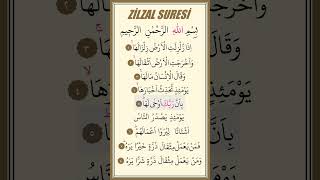 ZİLZAL SURESİ
بِسْمِ اللّٰهِ الرَّحْمٰنِ الرَّحِيمِ
اِذَا زُلْزِلَتِ الْاَرْضُ زِلْزَالَهَا ۙ ١
وَاَخْرَجَتِ الْاَرْضُ اَثْقَالَهَا ۙ ٢
وَقَالَ الْاِنْسَانُ مَا لَهَا ۚ ٣
يَوْمَئِذٍ تُحَدِّثُ اَخْبَارَهَا ۙ ٤
بِاَنَّ رَبَّكَ اَوْحٰى لَهَا ۜ ٥
يَوْمَئِذٍ يَصْدُرُ النَّاسُ
اَشْتَاتًا لِيُرَوْا اَعْمَالَهُمْ ۜ ٦
فَمَنْ يَعْمَلْ مِثْقَالَ ذَرَّةٍ خَيْرًا يَرَهُ ۜ ٧
وَمَنْ يَعْمَلْ مِثْقَالَ ذَرَّةٍ شَرًّا يَرَهُ ٨